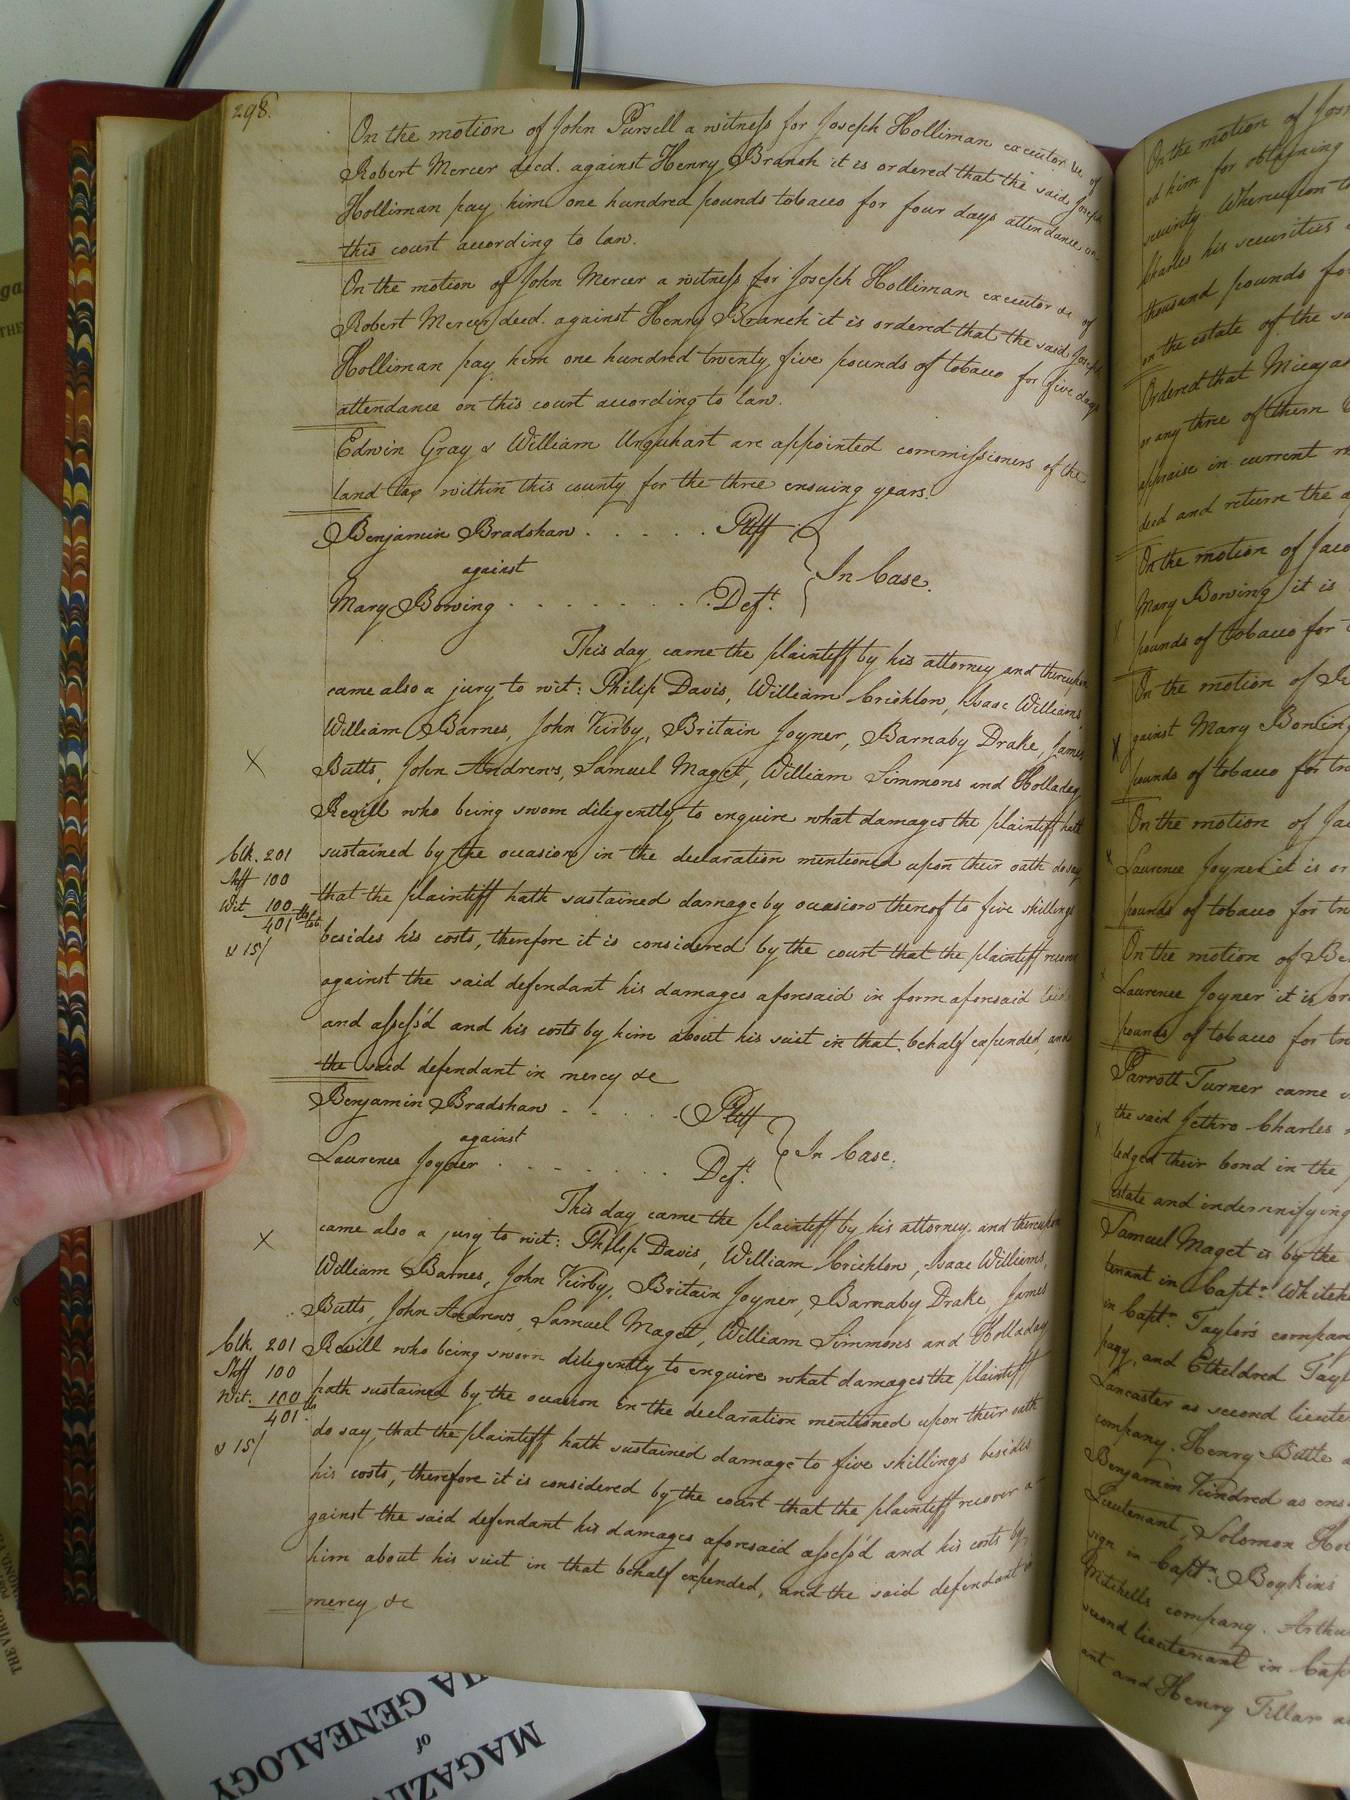 298.
On the motion of John Pursell a witness for Joseph Holliman executor &c of
Robert Mercer decd. against Henry Branch it is ordered that the said Joseph
Holliman pay him one hundred pounds tobacco for four days attendance on
this court according to law.
On the motion of John Mercer a witness for Joseph Holliman executor &c of
Robert Mercer decd. against Henry Branch it is ordered that the said Joseph
Holliman pay him one hundred twenty five pounds of tobacco for five days
attendance on this court according to law.
Edwin Gray & William Urquhart are appointed commissioners of the
land tax within this county for the three ensuing years.
Benjamin Bradshaw . . . . . . Pltff
against
In Case.
Mary Bowing . . . . . . . . Deft.
This day came the plaintiff by his attorney and thereupon
came also a jury to wit: Philip Davis, William Crichlow, Isaac Williams,
William Barnes, John Kirby, Britain Joyner, Barnaby Drake, James
X
Butts, John Andrews, Samuel Maget, William Simmons and Holladay
Revill who being sworn diligently to enquire what damages the plaintiff hath
Clk. 201
sustained by the occasion in the declaration mentioned upon their oath do say
Shff 100
that the plaintiff hath sustained damage by occasion thereof to five shillings
Wit. 100
401 lb tob
besides his costs, therefore it is considered by the court that the plaintiff recover
& 15/
against the said defendant his damages aforesaid in form aforesaid
and assess'd and his costs by him about his suit in that behalf expended, and
the said defendant in mercy &c
Benjamin Bradshaw . . . . . . Pltff
against
In Case.
Laurence Joyner . . . . . . . Deft.
This day came the plaintiff by his attorney and thereupon
X
came also a jury to wit: Philip Davis, William Crichlow, Isaac Williams,
William Barnes, John Kirby, Britain Joyner, Barnaby Drake, James
Butts, John Andrews, Samuel Maget, William Simmons and Holladay
Clk. 201
Revill who being sworn diligently to enquire what damages the plaintiff
Shff 100
hath sustained by the occasion in the declaration mentioned upon their oath
Wit. 100
401 lb
do say, that the plaintiff hath sustained damage to five shillings besides
& 15/
his costs, therefore it is considered by the court that the plaintiff recover a-
gainst the said defendant his damages aforesaid assess'd and his costs by
him about his suit in that behalf expended, and the said defendant in
mercy &c
On the motion of
ed him for obtaining
security Whereupon
Charles his securities
thousand pounds for
on the estate of the
Ordered that Micajah
or any three of them
appraise in current
decd and return the
On the motion of
Mary Bowing it is
pounds of tobacco for
On the motion of
gainst Mary Bowing
pounds of tobacco for
On the motion of
Laurence Joyner it is
pounds of tobacco for
On the motion of
Laurence Joyner it is
pounds of tobacco for
Parrott Turner came
the said Jethro Charles
ledged their bond in the
estate and indemnifying
Samuel Maget is by the
tenant in Captn.
in Captn. Taylor's
pany, and Etheldred
Lancaster as second
company. Henry Battle
Benjamin Kindred as
Lieutenant, Solomon
sign in Captn. Boykins
Mitchells company.
second lieutenant in
ant and Henry Tillar
MAGAZINE
of
GENEALOGY